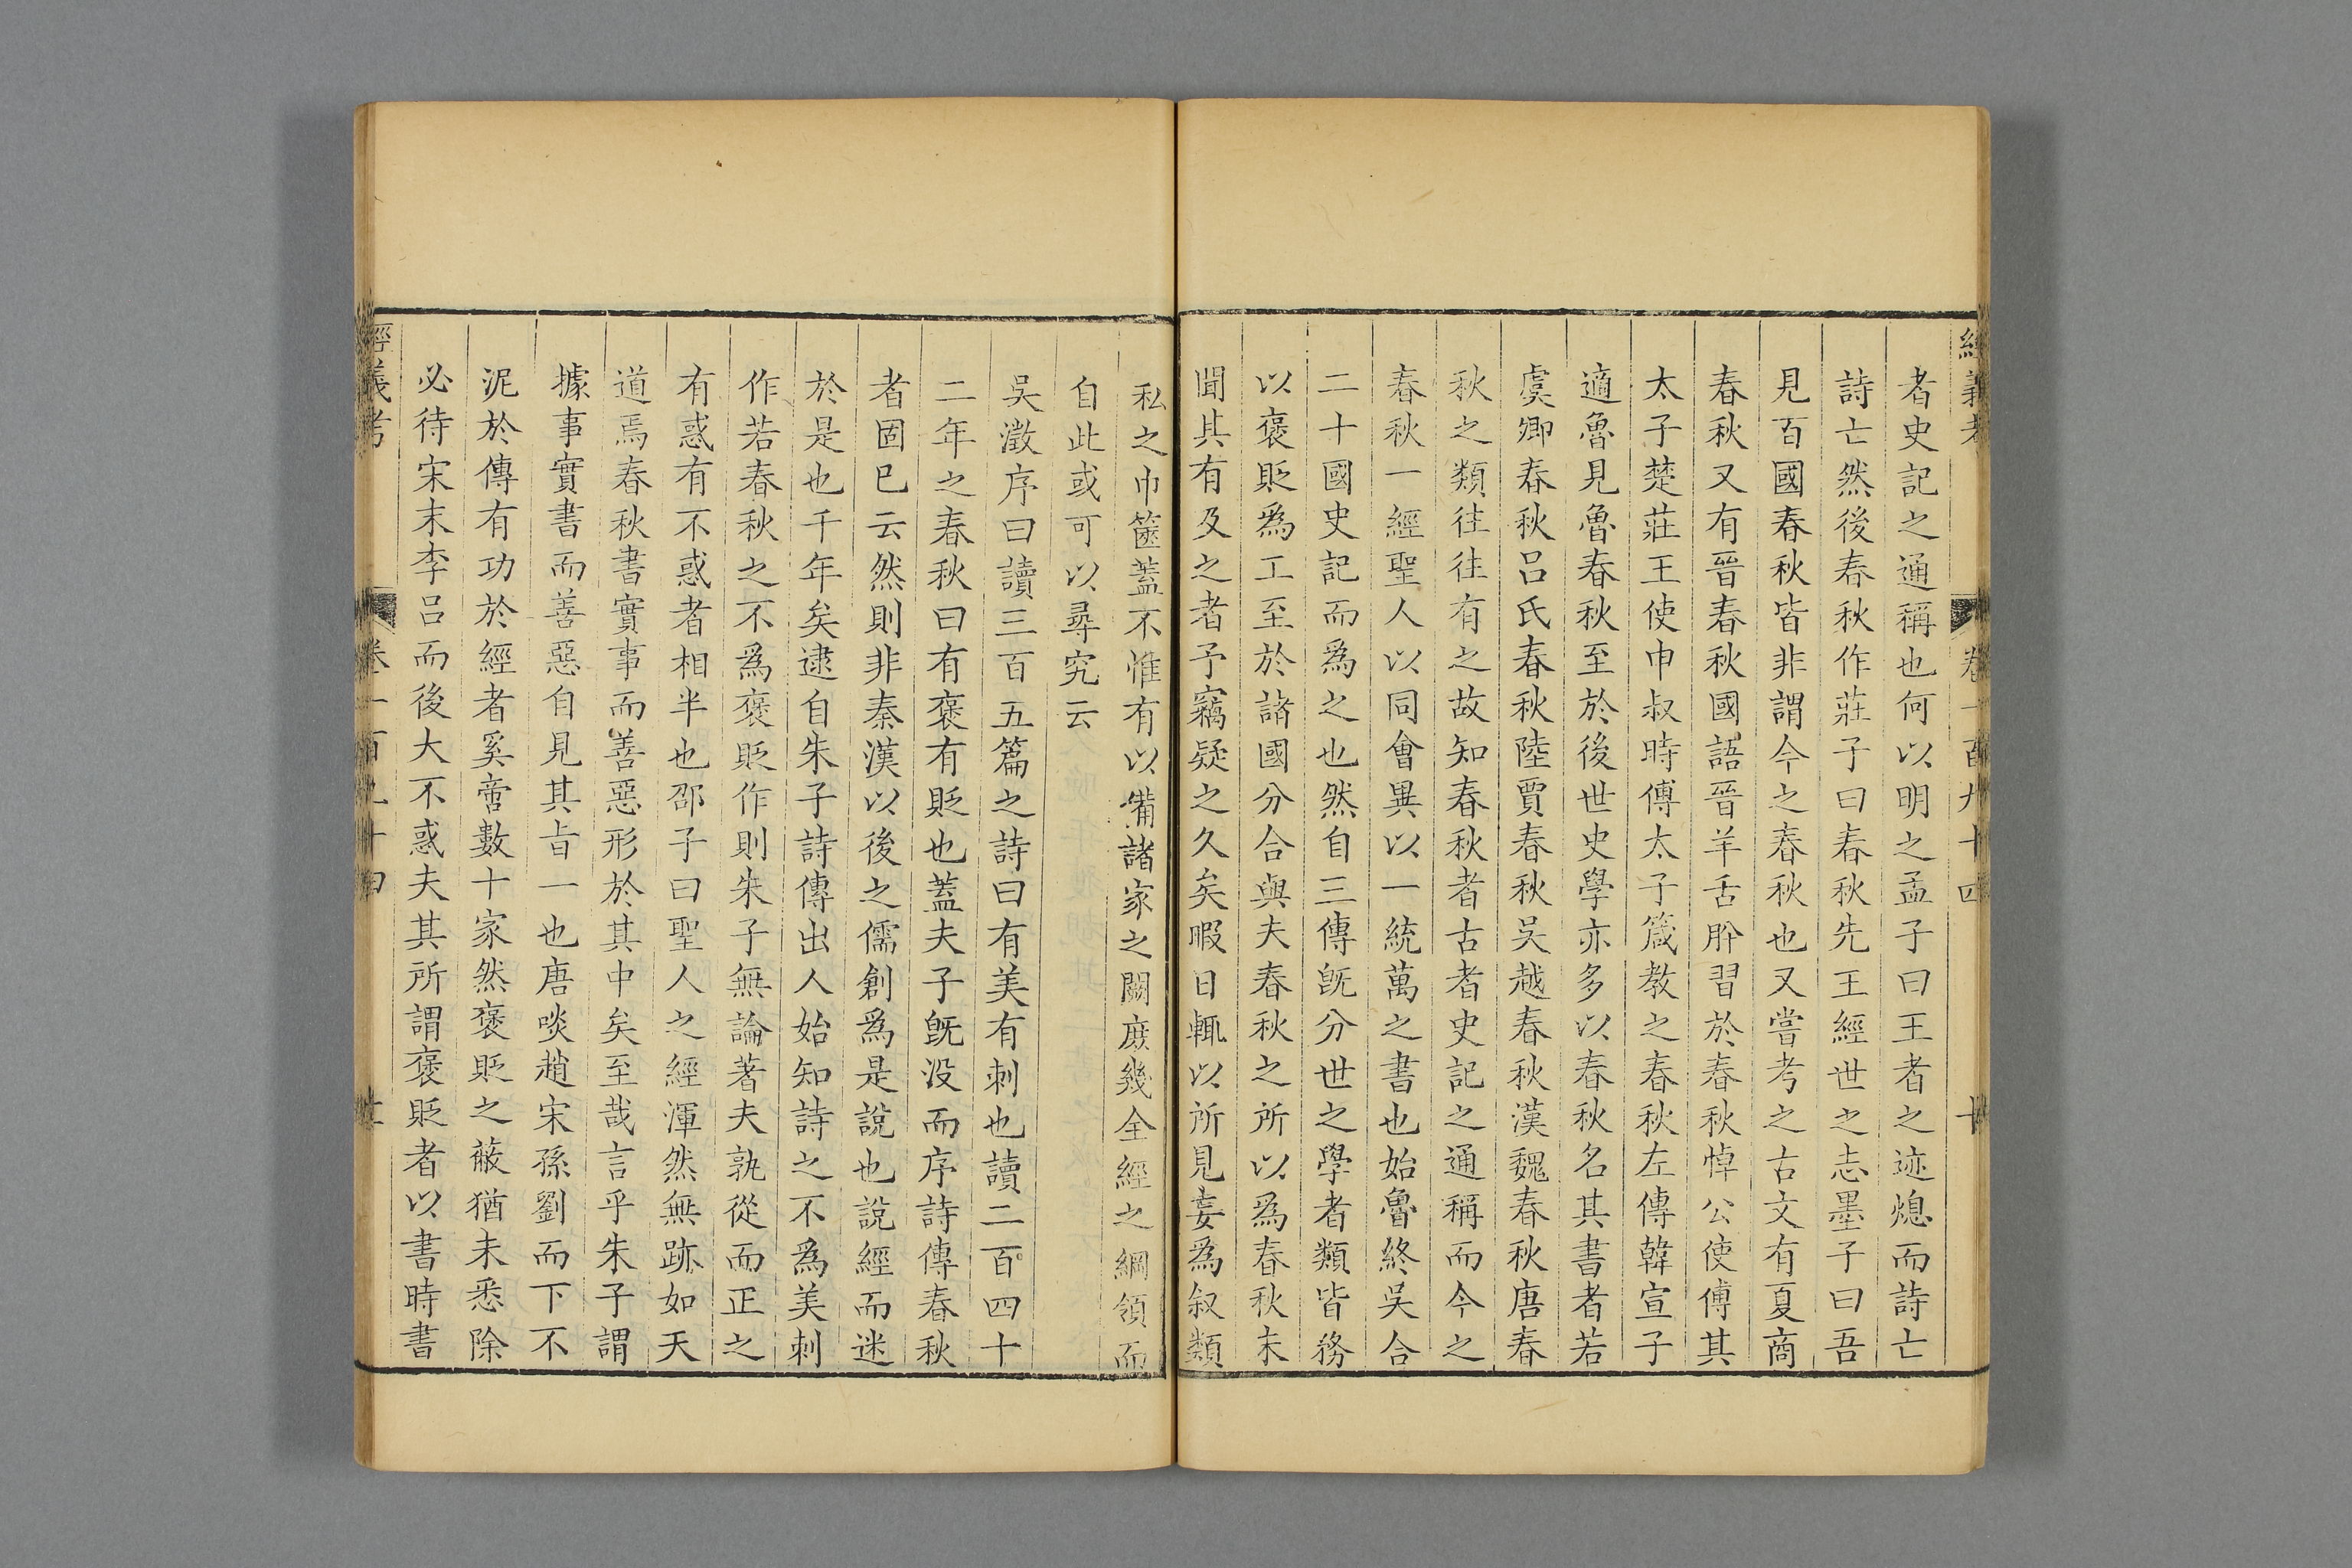 經義考 卷一百九十四 十
者史記之通稱也何以明之孟子曰王者之迹熄而詩亡
詩亡然後春秋作莊子曰春秋先王經世之志墨子曰吾
見百國春秋皆非謂今之春秋也又嘗考之古文有夏商
春秋又有晉春秋國語晉羊舌肸習於春秋悼公使傅其
太子楚莊王使申叔時傅太子箴教之春秋左傳韓宣子
適魯見魯春秋至於後世史學亦多以春秋名其書者若
虞卿春秋呂氏春秋陸賈春秋吳越春秋漢魏春秋唐春
秋之類徃徃有之故知春秋者古者史記之通稱而今之
春秋一經聖人以同會異以一統萬之書也始魯終吳合
二十國史記而為之也然自三傳旣分世之學者類皆務
以褒貶為工至於諸國分合與夫春秋之所以為春秋未
聞其有及之者予竊疑之久矣暇日輒以所見妄為敘類
私之巾篋蓋不惟有以備諸家之闕庶幾全經之綱領而
自此或可以尋究云
吳澂序曰讀三百五篇之詩曰有美有刺也讀二百四十
二年之春秋曰有褒有貶也蓋夫子旣没而序詩傳春秋
者固已云然則非秦漢以後之儒創為是說也說經而迷
於是也千年矣逮自朱子詩傳出人始知詩之不為美刺
作若春秋之不為褒貶作則朱子無論著夫孰從而正之
有惑有不惑者相半也邵子曰聖人之經渾然無跡如天
道焉春秋書實事而善惡形於其中矣至哉言乎朱子謂
據事實書而善惡自見其旨一也唐啖趙宋孫劉而下不
泥於傳有功於經者奚啻數十家然褒貶之蔽猶未悉除
必待宋末李呂而後大不惑夫其所謂褒貶者以書時書
經義考 卷一百九十四